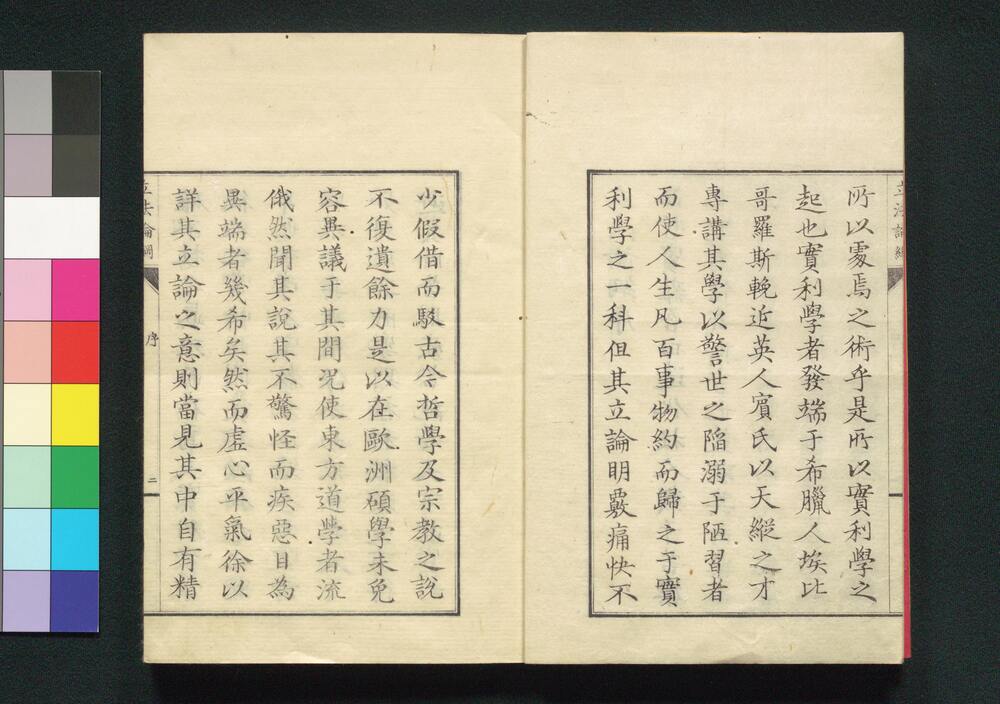 所以處焉之術乎是所以實利學之
起也實利學者發端于希臘人埃比
哥羅斯輓近英人賓氏以天縱之才
專講其學以警世之陷溺于陋習者
而使人生凡百事物約而歸之于實
利學之一科但其立論明覈痛快不
少假借而駁古今哲學及宗教之説
不復遺餘力是以在歐洲碩學未免
容異議于其間况使東方道學者流
俄然聞其説其不驚怪而疾惡目為
異端者幾希矣然而虚心平氣徐以
詳其立論之意則當見其中自有精
立法論綱
序
二